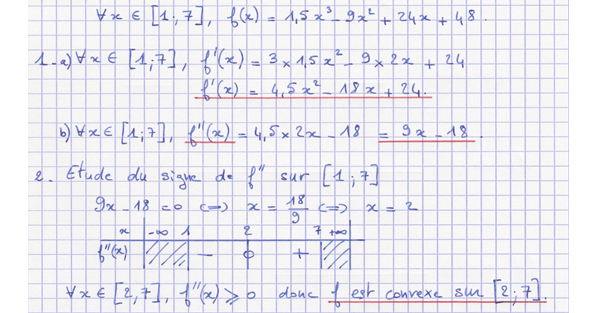 ∀x ∈ [1;7], f(x) = 1,5x³ - 9x² + 24x + 48.
1. a) ∀x ∈ [1;7], f'(x) = 3 × 1,5x² - 9 × 2x + 24
f'(x) = 4,5x² - 18x + 24.
b) ∀x ∈ [1;7], f''(x) = 4,5 × 2x - 18 = 9x - 18.
2. Etude du signe de f'' sur [1;7]
9x - 18 = 0 (=) x = 18/9 (=) x = 2
x -∞ 1 2 7 +∞
f''(x) - 0 +
∀x ∈ [2,7], f''(x) ⩾ 0 donc f est convexe sur [2;7].